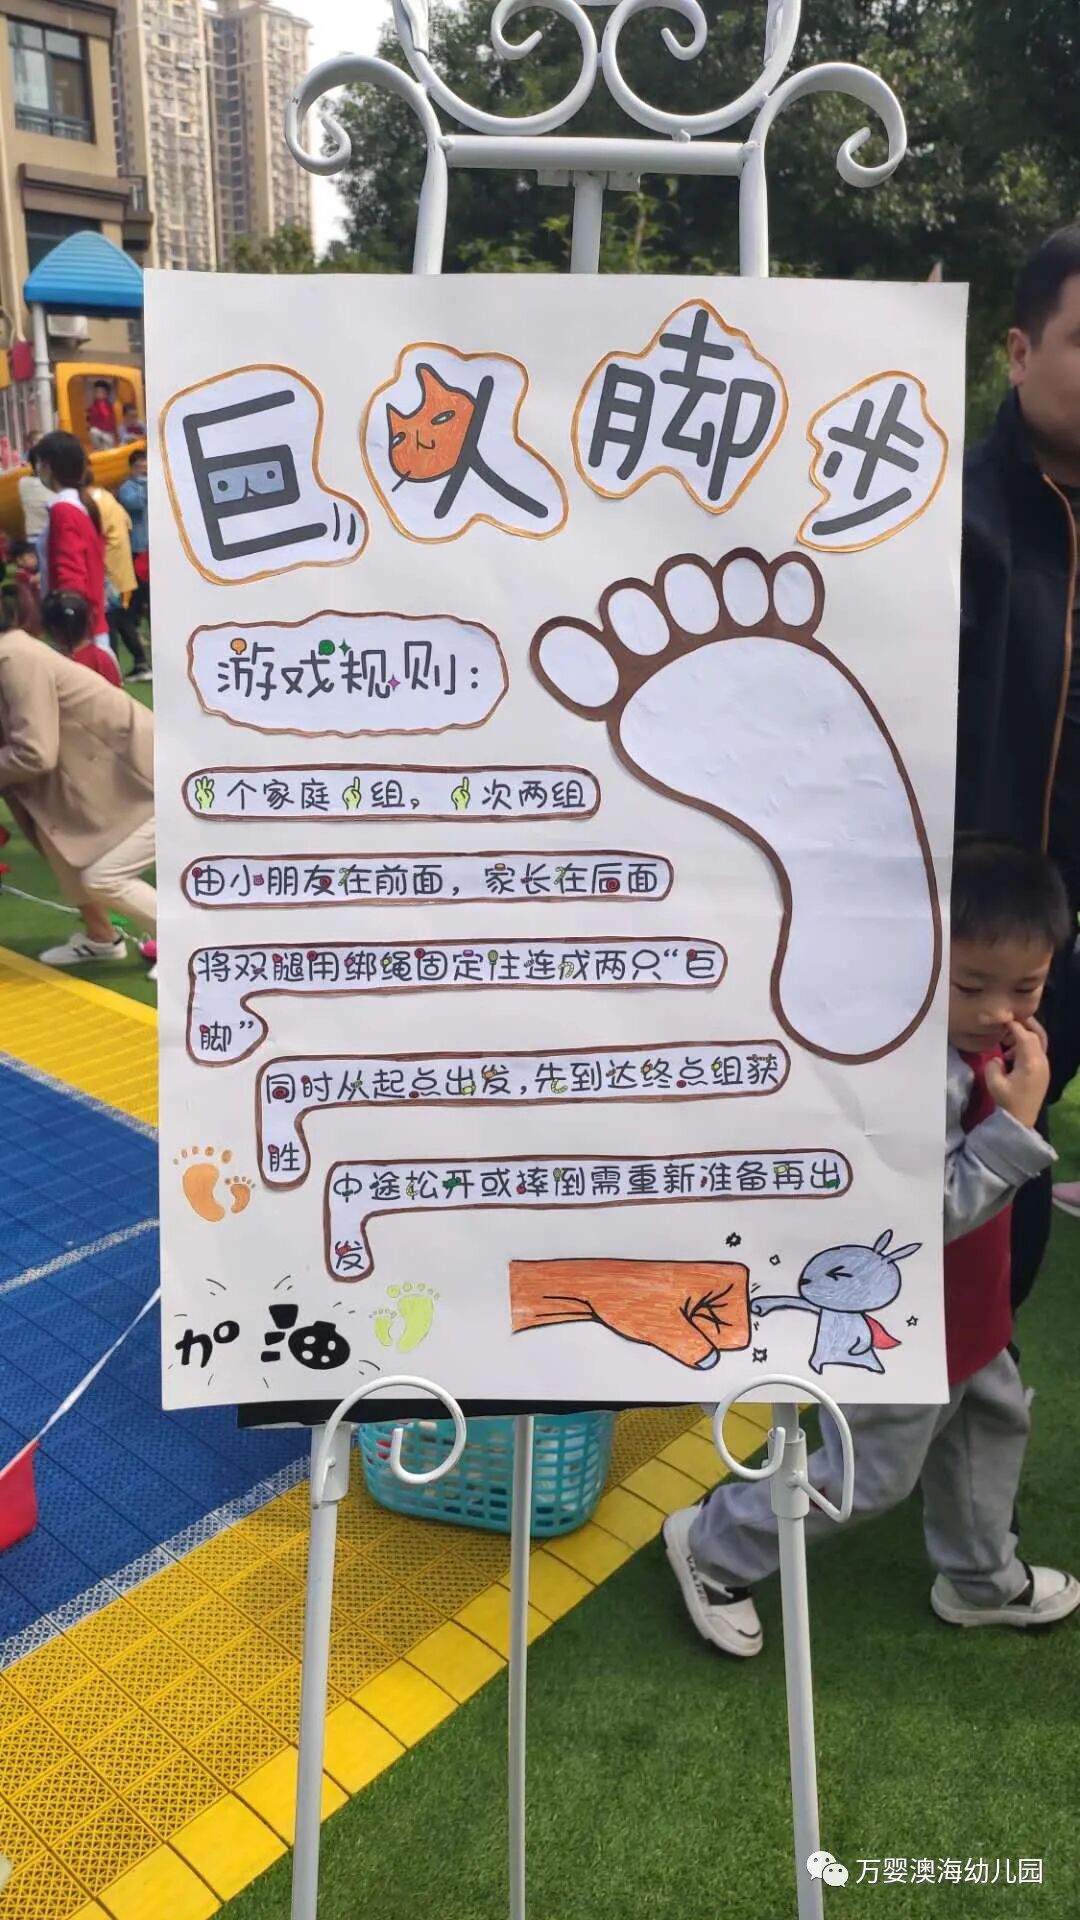 巨人脚步
游戏规则:
个家庭组，次两组
由小朋友在前面，家长在后面
将双腿用绑绳固定住连成两只“巨
脚”
同时从起点出发,先到达终点组获
胜
中途松开或摔倒需重新准备再出
发
加油
万婴澳海幼儿园